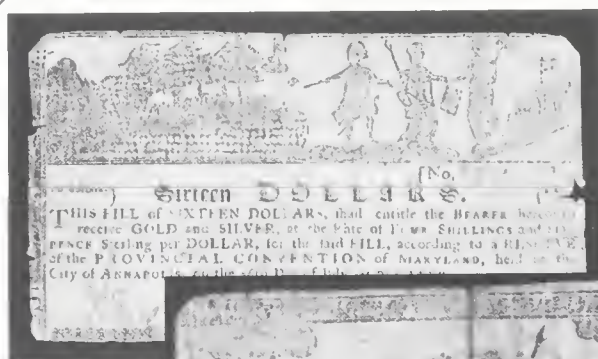 [No.
Sixteen DOLLARS.
THIS BILL of SIXTEEN DOLLARS, shall entitle the BEARER
receive GOLD and SILVER, at the Rate of FOUR SHILLINGS and
PENCE Sterling per DOLLAR, for the said BILL, according to a
of the PROVINCIAL CONVENTION of MARYLAND, held
City of ANNAPOLIS, on the